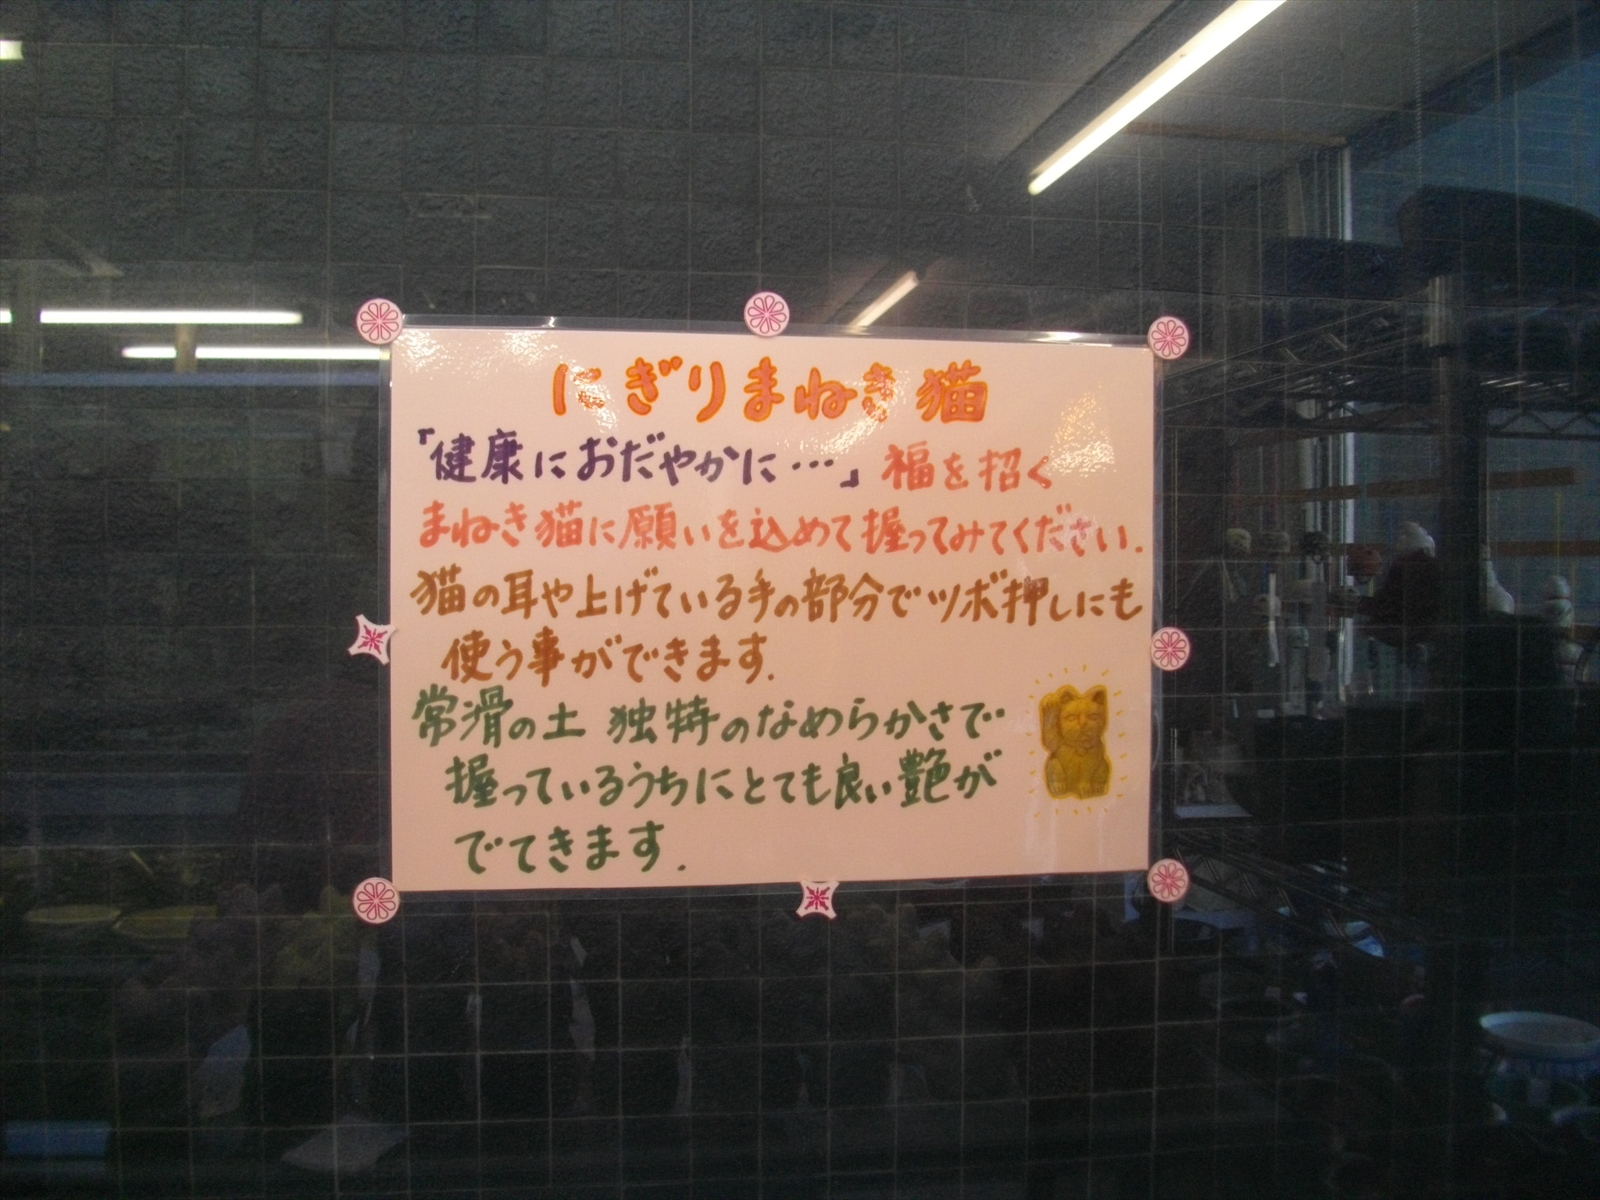 にぎりまねき猫
「健康におだやかに…」福を招く
まねき猫に願いを込めて握ってみてください.
猫の耳や上げている手の部分でツボ押しにも
使う事ができます.
常滑の土 独特のなめらかさで
握っているうちにとても良い艶が
でてきます.